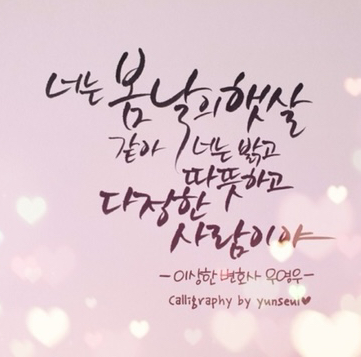 너는 봄날의 햇살
같아 너는 밝고
따뜻하고
다정한
사람이야
-이상한 변호사 우영우-
Calligraphy by yunseul♥